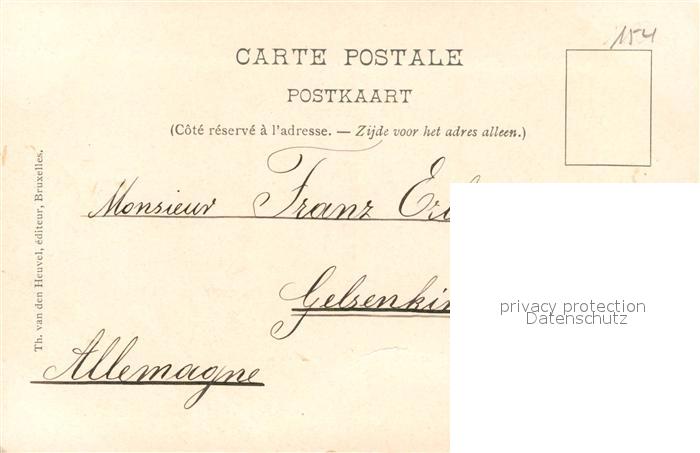 154
CARTE POSTALE
POSTKAART
(Côté réservé à l'adresse. — Zijde voor het adres alleen.)
Monsieur Franz
Th. van den Heuvel, éditeur, Bruxelles.
privacy protection
Datenschutz
Allemagne